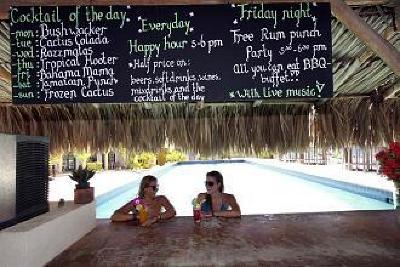 Cocktail of the day
-mon: Bushwacker
-tue: Cactus Colada
-wed: Razzmatas
-thu: Tropical Hooter
-fri: Bahama Mama
-sat: Jamaican Punch
-sun: Frozen Cactus
Everyday
Happy hour 5-6pm
*Half price on:
beers, soft drinks, wines,
mixdrinks & the
cocktail of the day
Friday night
Free Rum punch
Party 5:00-6:00 pm
All you can eat BBQ-
buffet..
*With live music